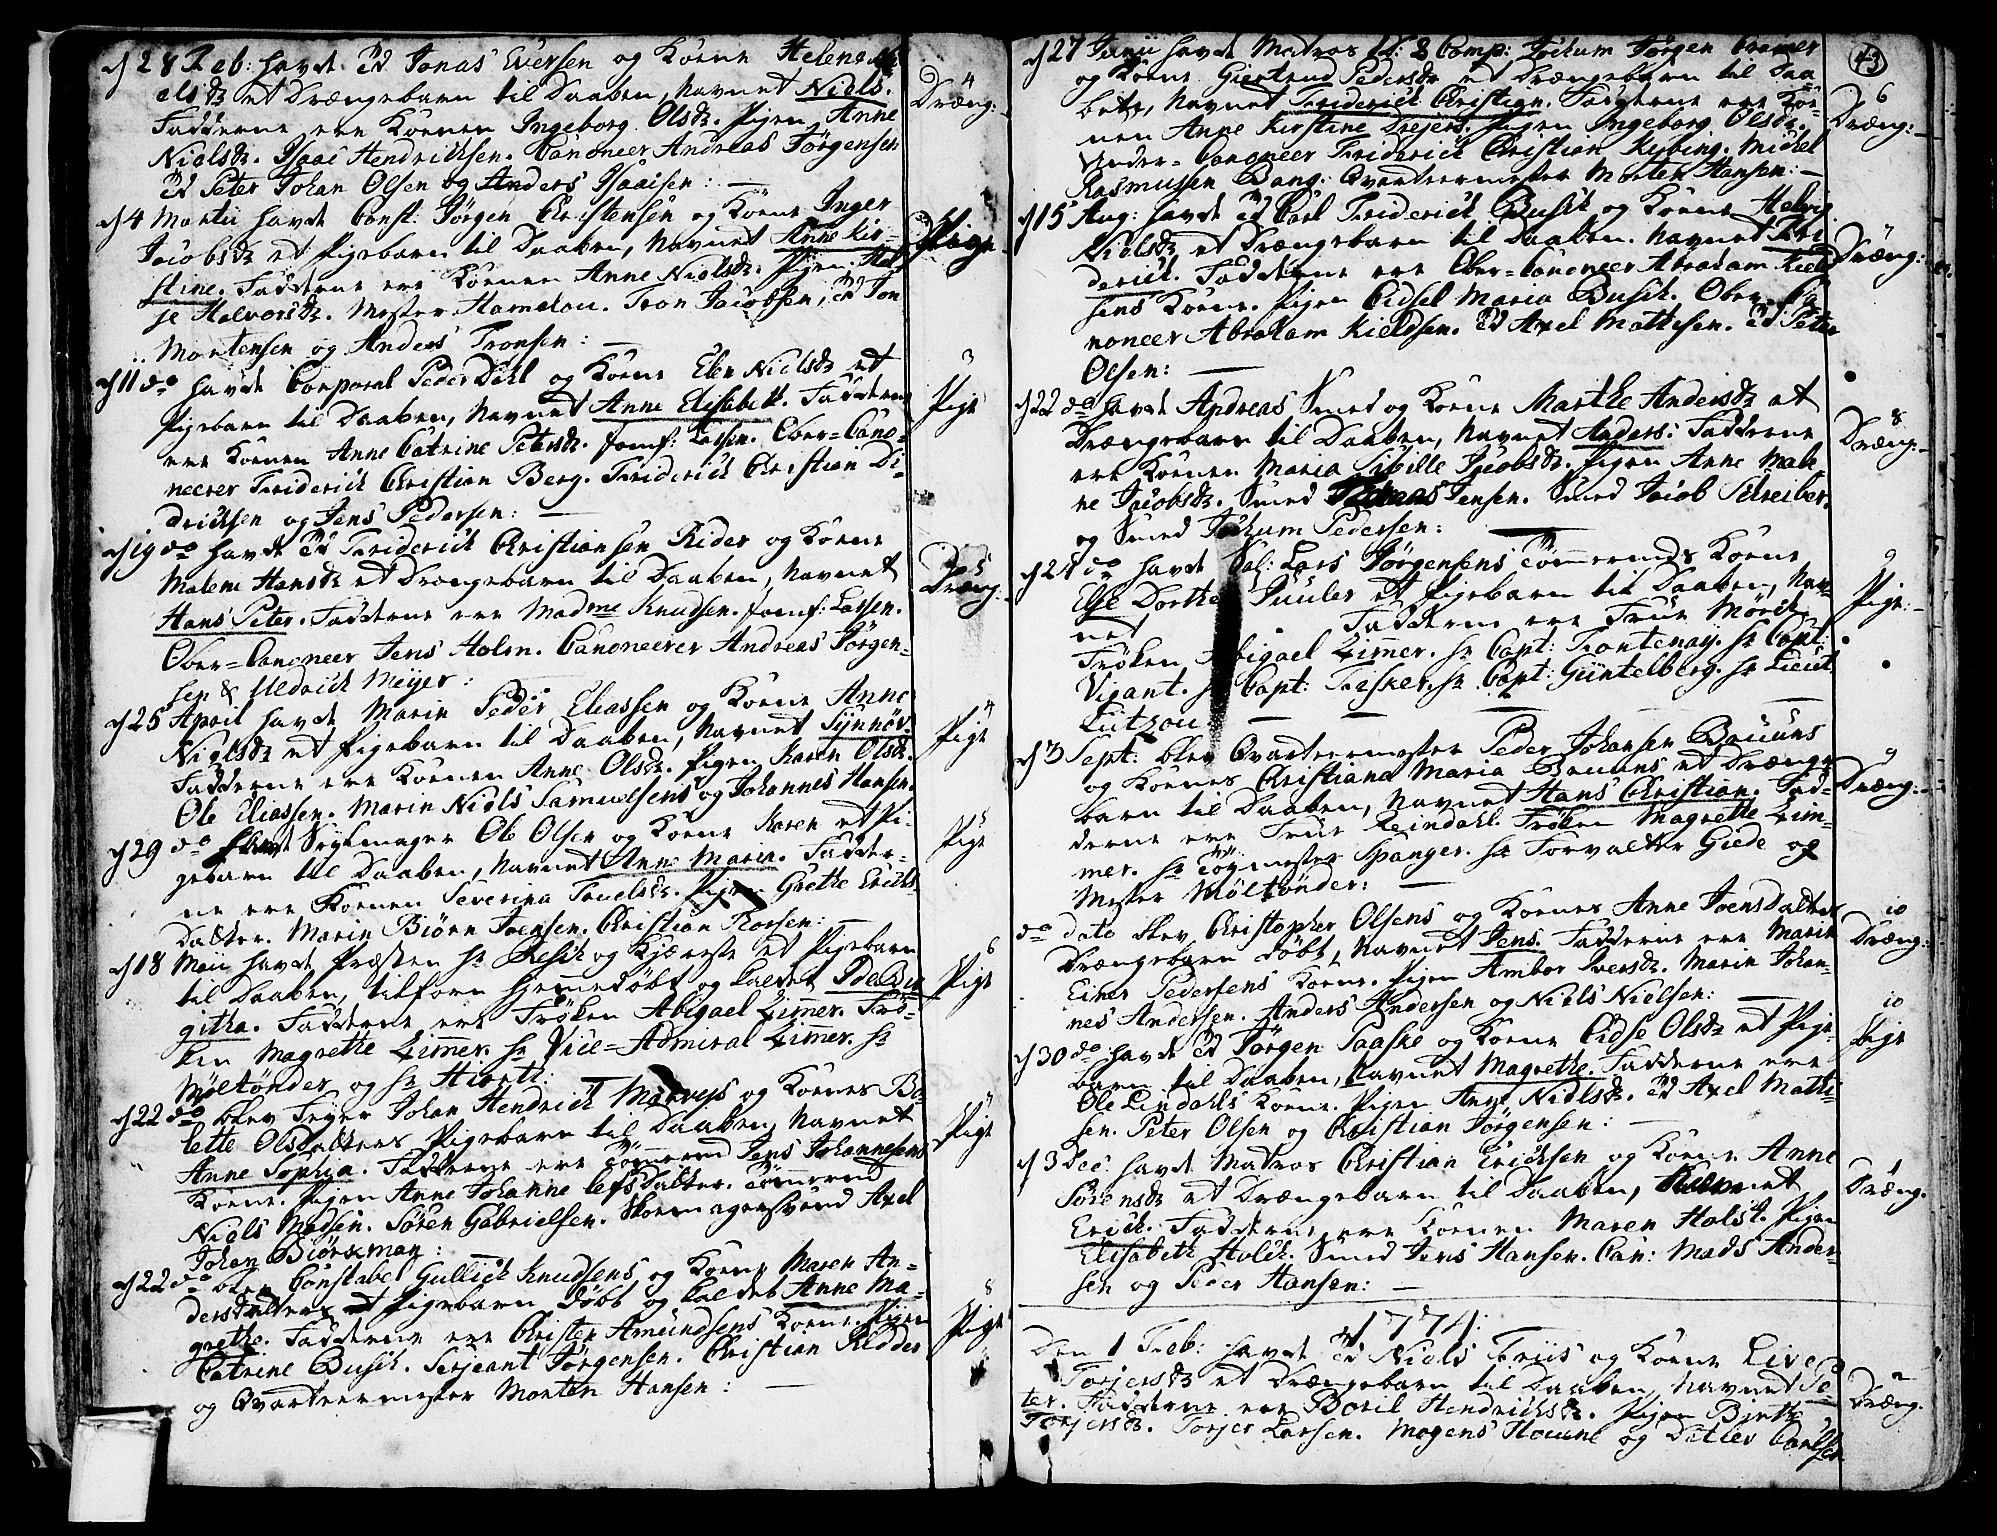 d 28 Feb: havde Ed Jonas Eversen og Kone Helene
elsdr et Drængebarn til Daaben, Navnet Niels.
Fadderne ere Konen Ingeborg Olsdr. Pigen Anne
Nielsdr. Isaac Hendrichsen. Canoneer Andreas Jørgensen
Ed Peter Johan Olsen og Anders Isaacsen: —
4
Dræng:
d 4 Martii havde Const: Jørgen Christensen og Kone Inger
Jacobsdr et Pigebarn til Daaben, Navnet Anne Kir-
stine. Fadderne ere Konen Anne Nielsdr. Pigen
je Halvorsdr. Mester Hameløu. Tron Jacobsen, Ed Jon
Mortensen og Anders Tronsen: —
Pige
d 11 do havde Corporal Peder Dehl og Kone Elen Nielsdr et
Pigebarn til Daaben, Navnet Anne Elisabeth. Fadderne
ere Konen Anne Catrine Petersdr. Jomf: Lassen. Ober-Cano-
neerer Friderich Christian Berg. Friderich Christian Di-
drichsen og Jens Pedersen: —
3
Pige
d 19 do havde Ed Friderich Christiansen Rider og Kone
Malene Hansdr et Drængebarn til Daaben, Navnet
Hans Peter. Fadderne ere Madme Knudsen. Jomf: Lassen.
Ober-Canoneer Jens Holm. Canoneerer Andreas Jørgen-
sen & Uldrich Meyer:
5
Dræng:
d 25 April havde Marin Peder Eliassen og Kone Anne
Nielsdr et Pigebarn til Daaben, Navnet Synnøv.
Fadderne ere Konen Anne Olsdr. Pigen Karen Olsdr.
Ole Eliassen. Marin Niels Samuelsens og Johannes Hansen.
4
Pige
d 29 do havde Seylmager Ole Olsen og Kone Karen et Pi-
gebarn til Daaben, Navnet Anne Marin. Fadder-
ne ere Konen Severina Truelsdr. Pigen Grethe Erichs
Datter. Marin Biørn Joensen. Christian Thorsen: —
5
Pige
d 18 Maii havde Præsten Hr Resih og Kjæreste et Pigebarn
til Daaben, tilforn hiemmedøbt og kaldet Ide Bir
githa. Fadderne ere Frøken Abigael Zimmer. Frø-
ken Magrethe Zimmer. Hr Vice-Admiral Zimmer. Hr
Møltønder og Hr Hiorth: —
6
Pige
d 22 do blev Feyer Johan Hendrich Marveys og Kones Bo-
lette Olsdatters Pigebarn til Daaben, Navnet
Anne Sophia. Fadderne ere Tømmermd Jens Johannesens
Kone. Pigen Anne Johanne Lefsdatter. Tømmermd
Niels Madsen. Søren Gabrielsen. Skoemagersvend Axel
Johan Biørkman:
7
Pige
d 22 do blev Constabel Gullich Knudsens og Kone Maren An-
dersdatters et Pigebarn døbt og kaldet Anne Ma-
grethe. Fadderne ere Christen Amundsens Kone. Pigen
Catrine Busch. Serjeant Jørgensen. Christian Ridder
og Qvarteermester Morten Hansen: —
8
Pige
43
d 27 Junii havde Matros Ed: 2 Comp: Jochum Jørgen Cramer
og Kone Giertrud Pedersdr et Drængebarn til Daa
ben, Navnet Friderich Christian. Fadderne ere Ko-
nen Anne Kirstine Drejers. Pigen Ingeborg Olsdr.
Under-Canoneer Friderich Christian Kybing. Michel
Rasmusen Bang: Qvarteermester Morten Hansen: —
6
Dræng:
d 15 Aug: havde Ed Carl Friderich Busch og Kone Helvig
Nielsdr et Drængebarn til Daaben. Navnet Fri
derich. Fadderne ere Ober-Canoneer Abraham Kield
sens Kone. Pigen Cidsel Maria Busch. Ober-Ca
noneer Abraham Kieldsen. Ed Axel Mathesen. Ed Peter
Olsen: —
7
Dræng:
d 22 do havde Andreas Smed og Kone Marthe Andersdr et
Drængebarn til Daaben, Navnet Anders: Fadderne
ere Konen Maria Sibille Jacobsdr. Pigen Anne Male-
ne Jacobsdr. Smed Jensen. Smed Jacob Schreiber.
og Smed Jochum Pedersen: —
8
Dræng:
d 24 do havde Sal: Lars Jørgensens Tømmermds Kone
Else Dorthe Puuler et Pigebarn til Daaben, Nav-
net Fadderne ere Frue Mørch.
Frøken Abigael Zimmer. Hr Capt: Fontenay. Hr Capt:
Vigant. Hr Capt: Fisker. Hr Capt: Güntelberg. Hr Lieut
Lützou — — —
9
Pige:
d 3 Sept: blev Qvarteermester Peder Johansen Bruuns
og Kones Christiana Maria Bruuns et Drænge
barn til Daaben, Navnet Hans Christian. Fad-
derne ere Frue Reindahl. Frøken Magrethe Zim-
mer. Hr Tøymester Spanger. Hr Forvalter Giede og
Mester Møltønder: —
9
Dræng:
do dato blev Christopher Olsens og Kones Anne Joensdatters
Drængebarn døbt, Navnet Jens. Fadderne ere Marin
Einer Pedersens Kone. Pigen Ambor Iversdr. Marin Johan-
nes Andersen. Anders Andersen og Niels Nielsen: —
10
Dræng:
d 30 do havde Ed Jørgen Paaske og Kone Cidse Olsdr et Pige-
barn til Daaben, Navnet Magrethe. Fadderne ere
Ole Lindahls Kone. Pigen Anne Nielsdr. Ed Axel Mathi-
sen. Peter Olsen og Christian Jørgensen: —
10
Pige
d 3 Dec: havde Matros Christian Erichsen og Kone Anne
Sørensdr et Drængebarn til Daaben, Navnet
Erich. Fadderne ere Konen Maren Holst. Pigen
Elisabeth Holst. Smed Jens Hansen. Can: Mads Ander-
sen og Peder Hansen: —
Dræng.
1774:
Den 1 Feb: havde Ed Niels Friis og Kone Live
Torjersdr et Drængebarn til Daaben, Navnet Pe-
ter. Fadderne ere Boril Hendrichsdr. Pigen Birthe
Torjersdr. Torjer Larsen. Mogens Houne og Detlev Carlsen
2
Dræng.